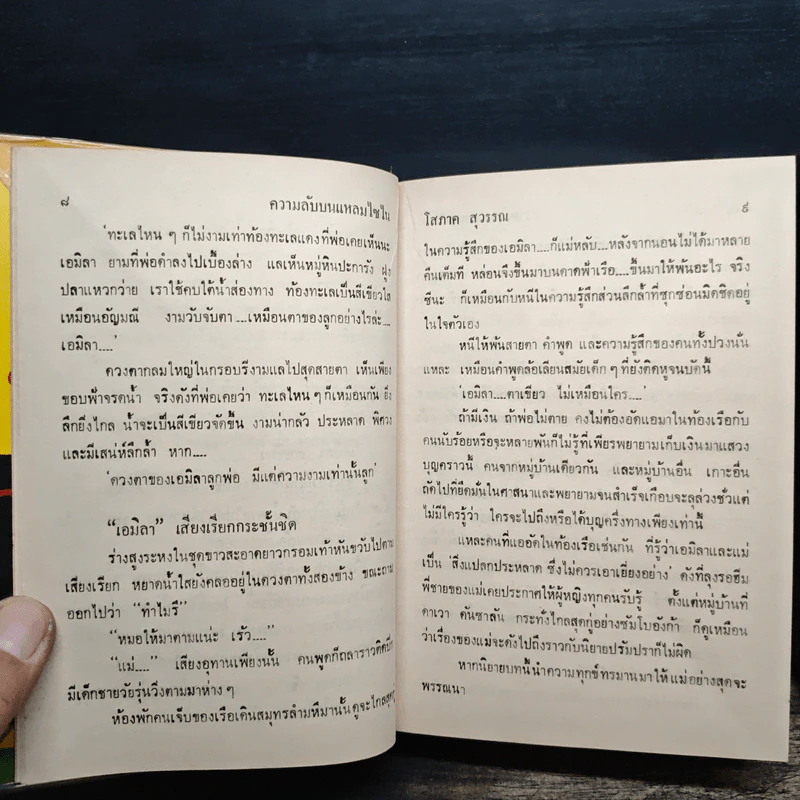 ๘
ความลับบนแหลมไซไน
'ทะเลไหน ๆ ก็ไม่งามเท่าท้องทะเลแดงที่พ่อเคยเห็นนะ
เอมิลา ยามที่พ่อดำลงไปเบื้องล่าง แลเห็นหมู่หินปะการัง ฝูง
ปลาแหวกว่าย เราใช้คบใต้น้ำส่องทาง ท้องทะเลเป็นสีเขียวใส
เหมือนอัญมณี งามวับจับตา....เหมือนตาของลูกอย่างไรล่ะ....
เอมิลา....'
ดวงตากลมใหญ่ในกรอบรีงามแลไปสุดสายตา เห็นเพียง
ขอบฟ้าจรดน้ำ จริงดังที่พ่อเคยว่า ทะเลไหน ๆ ก็เหมือนกัน ยิ่ง
ลึกยิ่งไกล น้ำจะเป็นสีเขียวจัดขึ้น งามน่ากลัว ประหลาด พิศวง
และมีเสน่ห์ลึกล้ำ หาก....
'ดวงตาของเอมิลาลูกพ่อ มีแต่ความงามเท่านั้นลูก'
“เอมิลา” เสียงเรียกกระชั้นชิด
ร่างสูงระหงในชุดขาวสะอาดยาวกรอมเท้าหันขวับไปตาม
เสียงเรียก หยาดน้ำใสยังคลออยู่ในดวงตาทั้งสองข้าง ขณะถาม
ออกไปว่า “ทำไมรึ”
“หมอให้มาตามแน่ะ เร็ว....”
“แม่....” เสียงอุทานเพียงนั้น คนพูดก็ถลาราวติดปีก
มีเด็กชายวัยรุ่นวิ่งตามมาห่าง ๆ
ห้องพักคนเจ็บของเรือเดินสมุทรลำมหึมานั้นดูจะไกลสุดกู่
โสภาค สุวรรณ
๙
ในความรู้สึกของเอมิลา....ก็แม่หลับ....หลังจากนอนไม่ได้มาหลาย
คืนเต็มที่ หล่อนจึงขึ้นมาบนดาดฟ้าเรือ....ขึ้นมาให้พ้นอะไร จริง
ซีนะ ก็เหมือนกับหนีในความรู้สึกส่วนลึกล้ำที่ซุกซ่อนมิดชิดอยู่
ในใจตัวเอง
หนีให้พ้นสายตา คำพูด และความรู้สึกของคนทั้งปวงนั่น
แหละ เหมือนคำพูดล้อเลียนสมัยเด็ก ๆ ที่ยังติดหูจนบัดนี้
'เอมิลา....ตาเขียว ไม่เหมือนใคร....'
ถ้ามีเงิน ถ้าพ่อไม่ตาย คงไม่ต้องอัดแอมาในท้องเรือกับ
คนนับร้อยหรือจะหลายพันก็ไม่รู้ที่เพียรพยายามเก็บเงินมาแสวง
บุญคราวนี้ คนจากหมู่บ้านเดียวกัน และหมู่บ้านอื่น เกาะอื่น
ถัดไปที่ยึดมั่นในศาสนาและพยายามจนสำเร็จเกือบจะลุล่วงชั่วแต่
ไม่มีใครรู้ว่า ใครจะไปถึงหรือได้บุญครึ่งทางเพียงเท่านี้
แหละคนที่แออัดในท้องเรือเช่นกัน ที่รู้ว่าเอมิลาและแม่
เป็น 'สิ่งแปลกประหลาด ซึ่งไม่ควรเอาเยี่ยงอย่าง' ดังที่ลุงรอฮีม
พี่ชายของแม่เคยประกาศให้ผู้หญิงทุกคนรับรู้ ตั้งแต่หมู่บ้านที่
คาเวา คันซาลัน กระทั่งไกลสุดกู่อย่างซัมโบอังก้า ก็ดูเหมือน
ว่าเรื่องของแม่จะดังไปถึงราวกับนิยายปรัมปราก็ไม่ผิด
หากนิยายบทนี้นำความทุกข์ทรมานมาให้แม่อย่างสุดจะ
พรรณนา